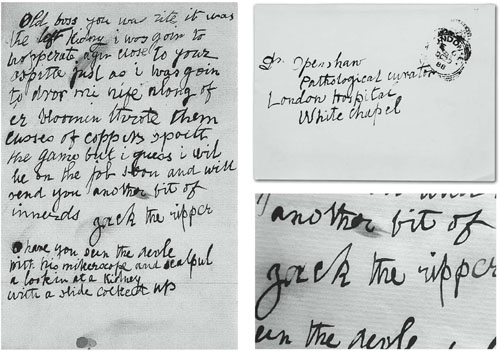 Old boss you was rite it was
the left kidny i was goin to
hopperate agin close to your
ospitle just as i was goin
to dror mi nife along of
er bloomin throte them
cusses of coppers spoilt
the game but i guess i wil
be on the job soon and will
send you another bit of
innerds
Jack the ripper
O have you seen the devle
with his mikerscope and scalpul
a lookin at a Kidney
with a slide cocked up
Dr. Openshaw
Pathological curator
London Hospital
White chapel
another bit of
Jack the ripper
een the devle